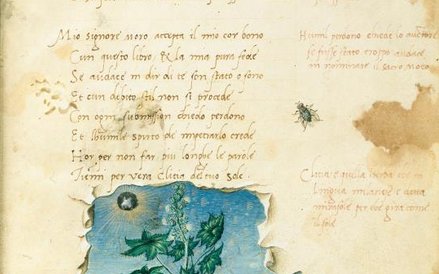 Mio signore moro accepta il mio cor bono
Cun questo libro & la mia pura fede
Se audace in dir di te son stato o sono
Et cun debito stil non si procede
Con ogni submission chiedo perdono
Et lhumile spirto de injectarlo crede
Hor per non far piu longhe le parole
Tiemi per vera Clitia del tuo sole
Humil perdono chiede lo auctore
se fusse stato troppo audace
in nominare il sacro moro
Clitia e quella herba che in
lingua
per che gira come
il sole